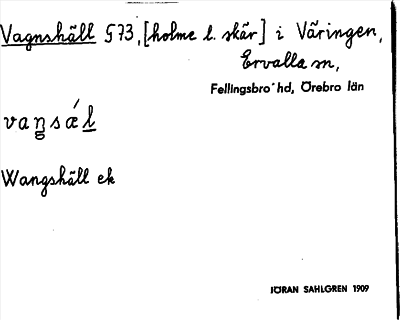 Vagnshäll §73, [holme l. skär] i Väringen,
Ervalla sn,
Fellingsbro hd, Örebro län
vaŋsǽl
Wangshäll ek
JÖRAN SAHLGREN 1909